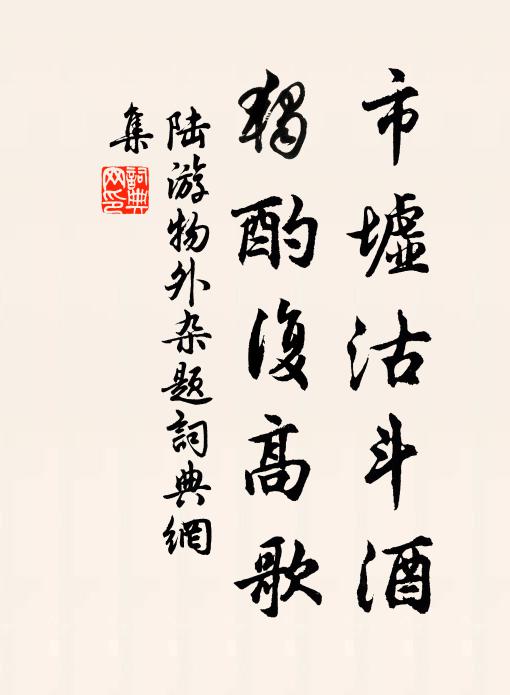 市墟沽斗酒
獨酌復高歌
陸游物外杂題詞典網
集
詞典
网印